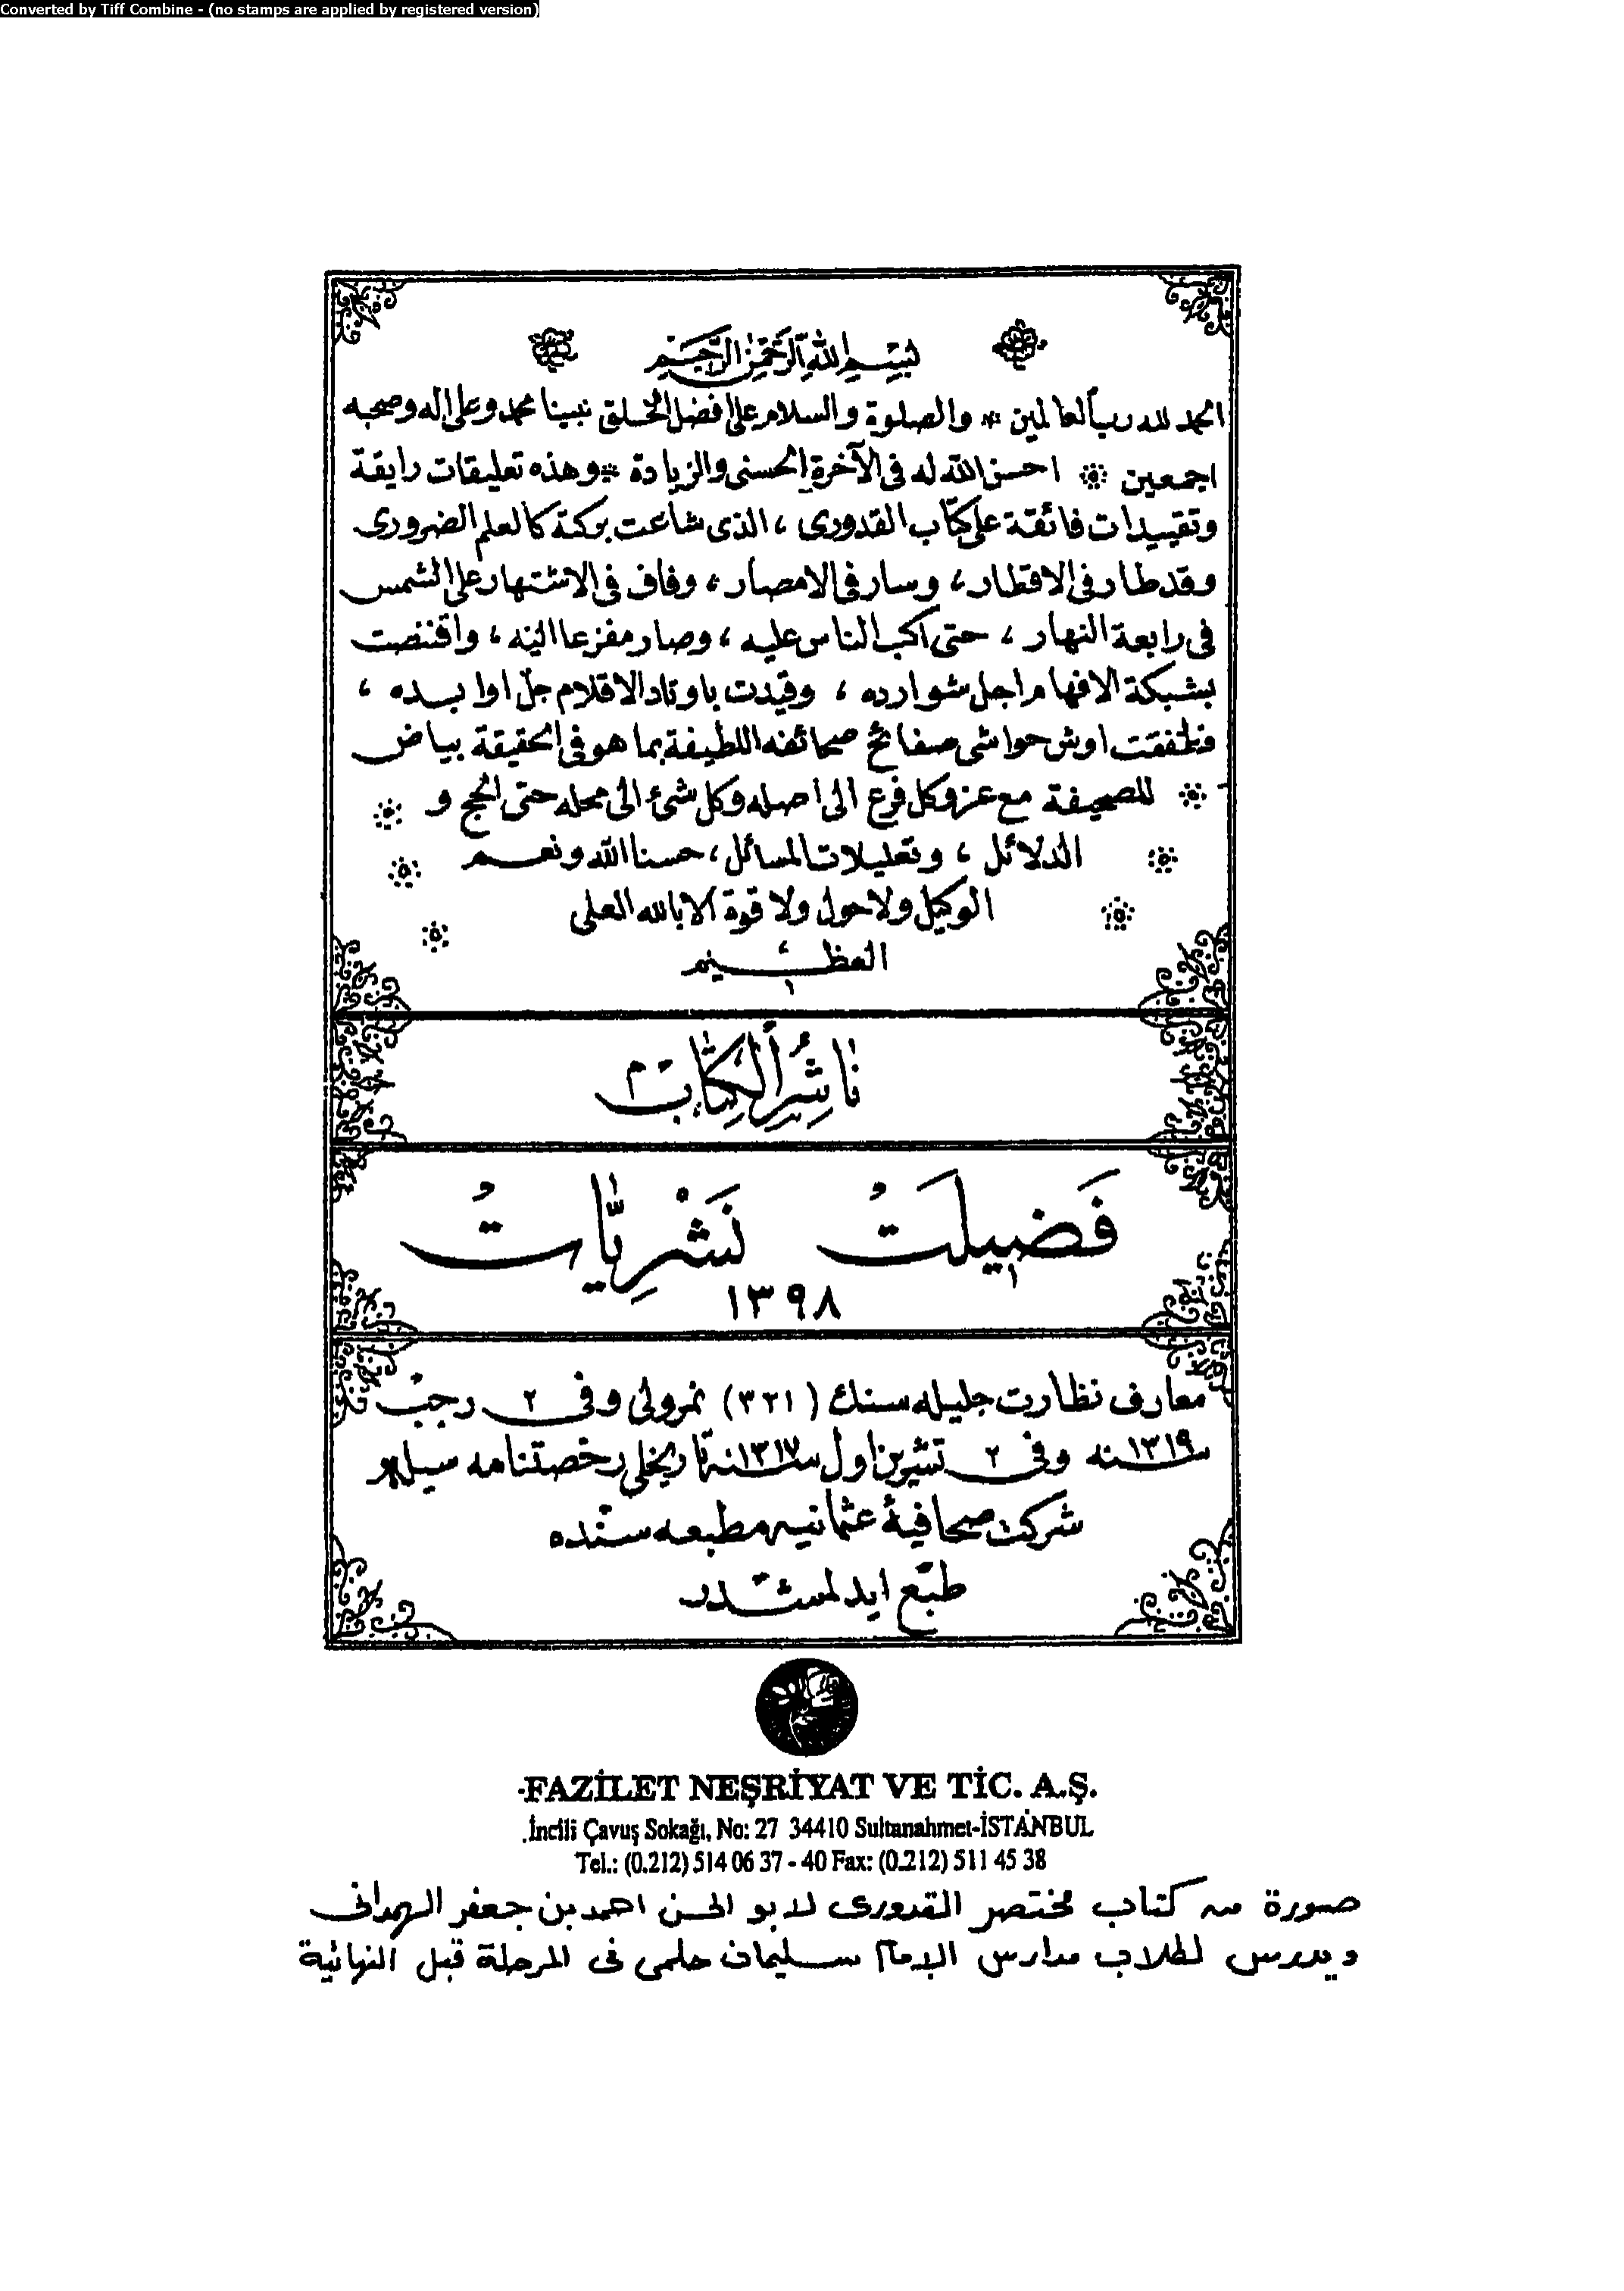 Converted by Tiff Combine - (no stamps are applied by registered version)
بسم الله الرحمن الرحيم
الحمد لله رب العالمين * والصلوة والسلام على افضل الخلق نبينا محمد وعلى اله وصحبه
اجمعين * احسن الله له فى الآخرة الحسنى والزيادة * وهذه تعليقات رايقة
وتقييدات فائقة على كتاب القدورى ، الذى شاعت بركته كالعلم الضرورى
وقد طار فى الاقطار ، وسار فى الامصار ، وفاق فى الاشتهار على الشمس
فى رابعة النهار ، حتى اكب الناس عليه ، وصار مفزعا اليه ، واقتنصت
بشبكة الافهام اجل شوارده ، وقيدت باوتاد الاقلام جل اوابده ،
فطفقت اوشى حواشى صفائح صحائفه اللطيفة بما هو فى الحقيقة بياض
* للصحيفة مع عزو كل فرع الى اصله وكل شئ الى محله حتى الحجج و *
* الدلائل ، وتعليلات المسائل ، حسنا الله ونعم *
* الوكيل ولا حول ولا قوة الا بالله العلى *
العظيم
ناشر الكتاب
فَضيلَتْ نَشْرِيّاتْ
١٣٩٨
معارف نظارت جليله سنك (٣٢١) نمرولى وفى ٢ رجب
سنه ١٣١٩ وفى ٢ تشرين اول سنه ١٣١٧ تاريخلى رخصتنامه سيله
شركت صحافيۀ عثمانيه مطبعه سنده
طبع ايدلمشدر
FAZİLET NEŞRİYAT VE TİC. A.Ş.
İncili Çavuş Sokağı, No: 27 34410 Sultanahmet-İSTANBUL
Tel.: (0.212) 514 06 37 - 40 Fax: (0.212) 511 45 38
صورة من كتاب مختصر القدورى لابو الحسن احمد بن جعفر الهمدانى
ويدرس لطلاب مدارس الإمام سليمان حلمى فى المرحلة قبل النهائية